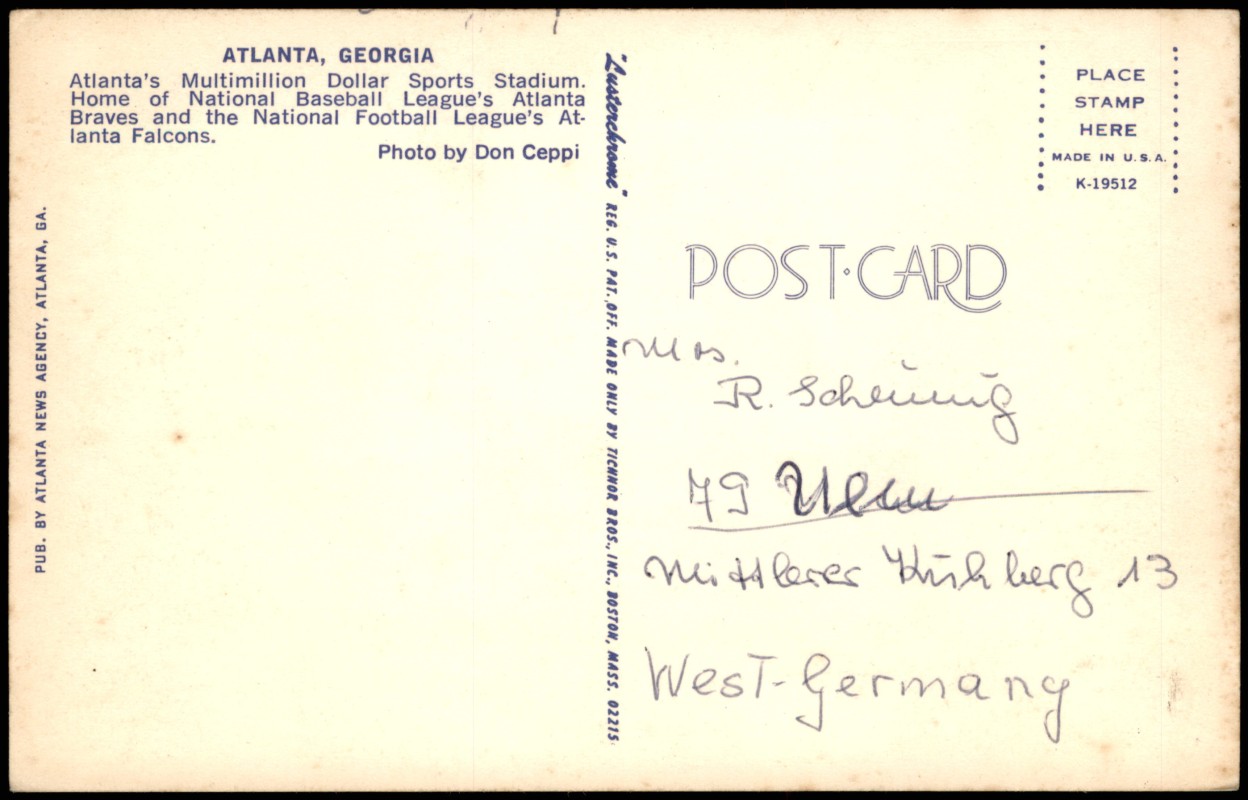 ATLANTA, GEORGIA
Atlanta's Multimillion Dollar Sports Stadium.
Home of National Baseball League's Atlanta
Braves and the National Football League's At-
lanta Falcons.
Photo by Don Ceppi
PUB. BY ATLANTA NEWS AGENCY, ATLANTA, GA.
"Lusterchrome" REG. U.S. PAT. OFF. MADE ONLY BY TICHNOR BROS., INC., BOSTON, MASS. 02215
PLACE
STAMP
HERE
MADE IN U.S.A.
K-19512
POST·CARD
Mrs.
R. Scheunig
79 Ulm
Mittlerer Kuhberg 13
West-Germany